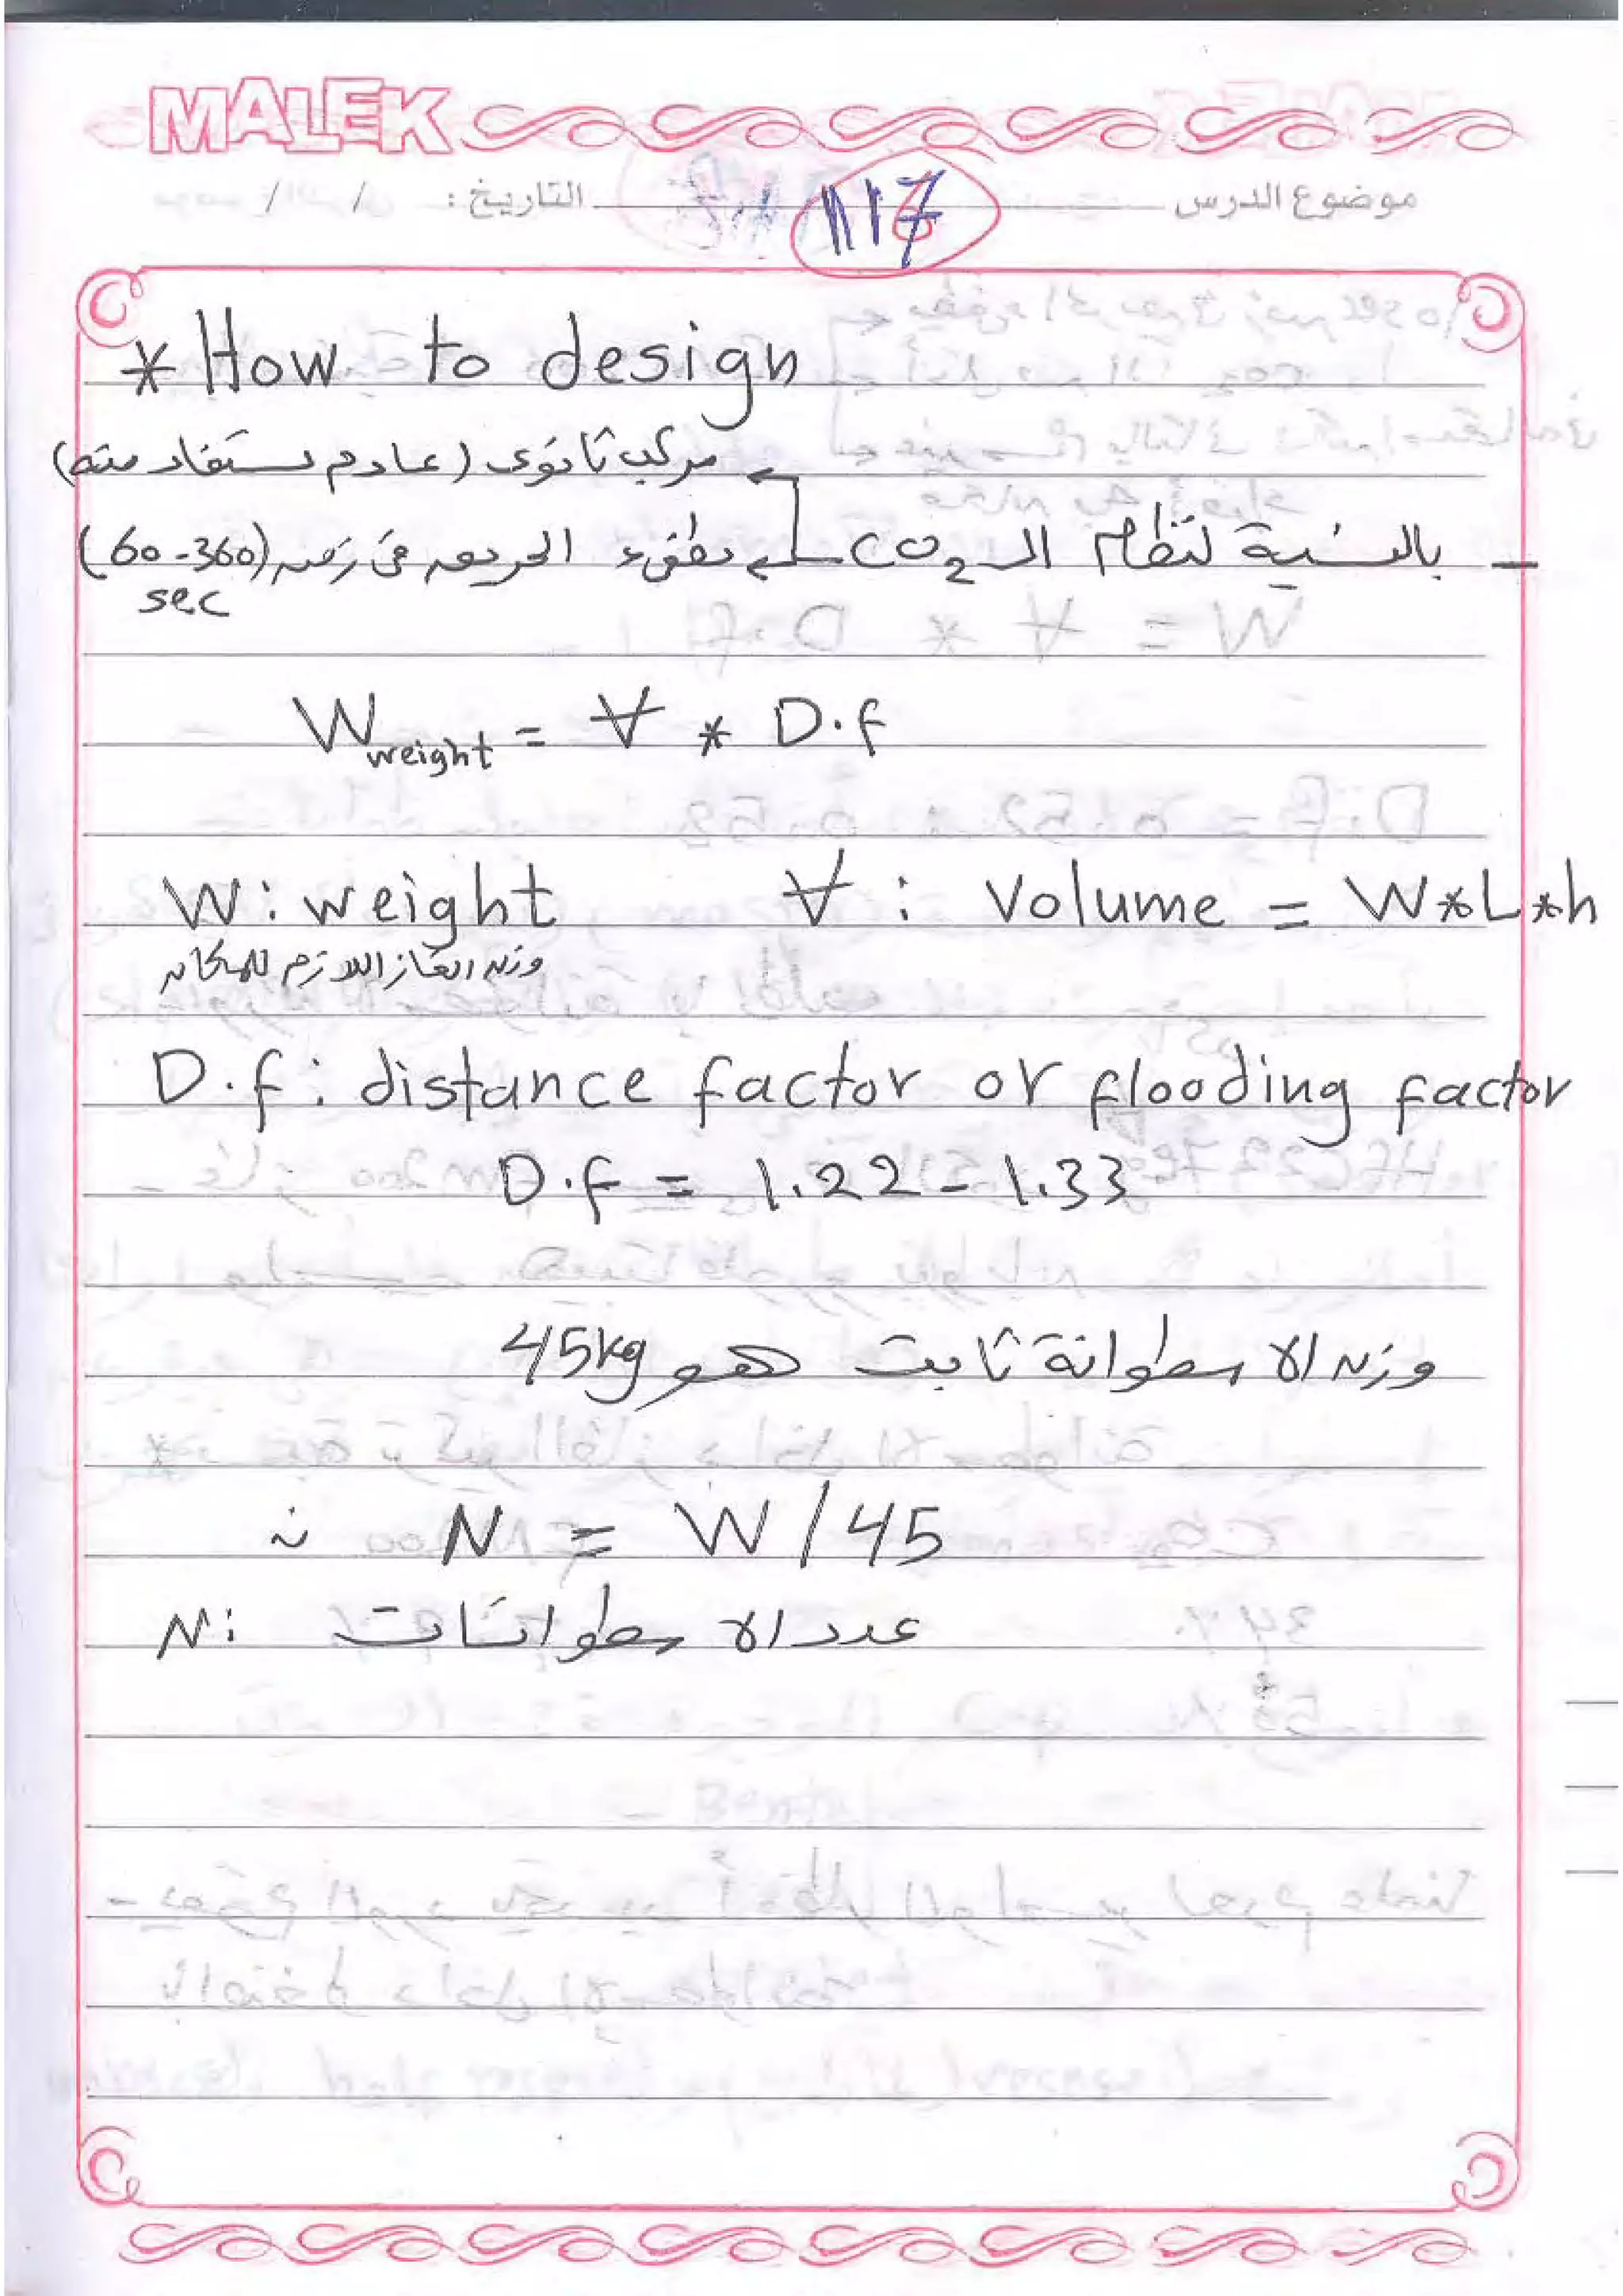 MALEK
موضوع الدرس التاريخ : / /
117
* How to design
مركب ثانوى (عادم مستفاد منه)
- بالنسبة لنظام الـ CO2 يطفىء الحريق فى زمن (60-360) sec
W weight = V * D.f
W: weight V : Volume = W*L*h
وزن الغاز اللازم للمكان
D.f : distance factor or flooding factor
D.f = 1.22 - 1.33
وزن الاسطوانة ثابت هو 45kg
N = W / 45
N: عدد الاسطوانات